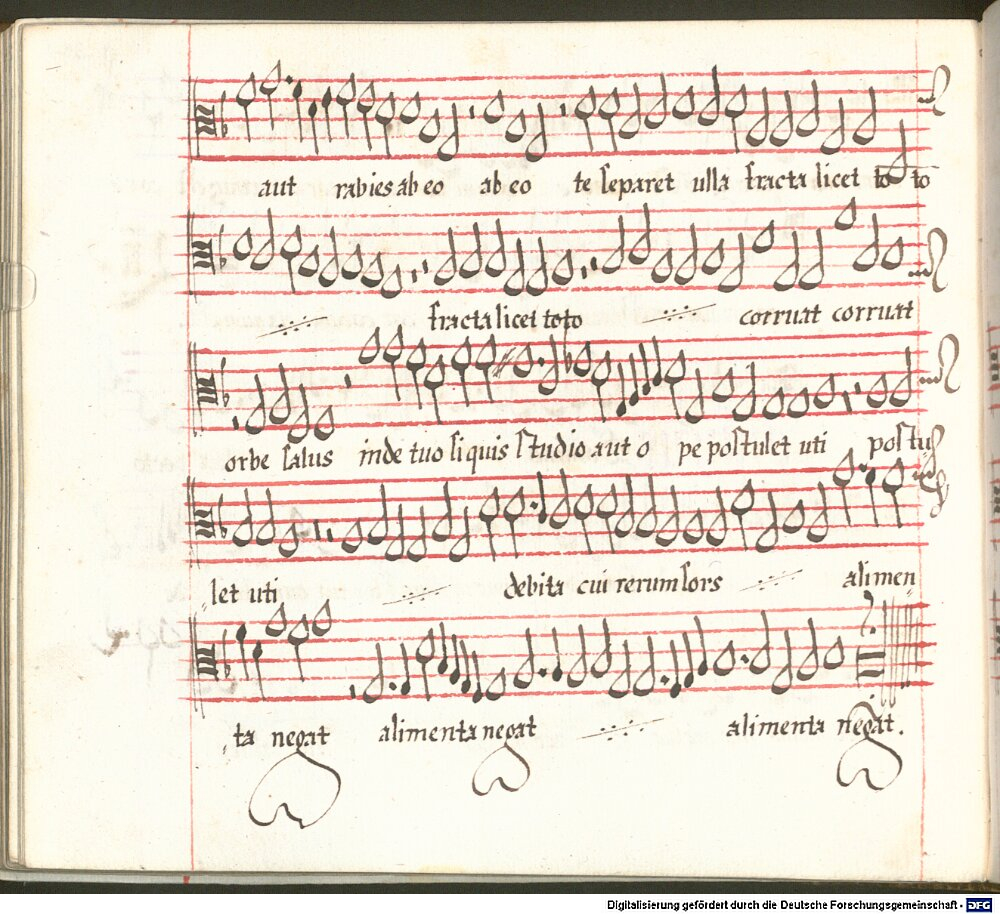 aut rabies ab eo ab eo te separet ulla fracta licet to to
fracta licet toto corruat corruat
orbe salus inde tuo si quis studio aut o pe postulet uti postu
let uti debita cui rerum sors alimen
ta negat alimenta negat alimenta negat.
Digitalisierung gefördert durch die Deutsche Forschungsgemeinschaft - DFG